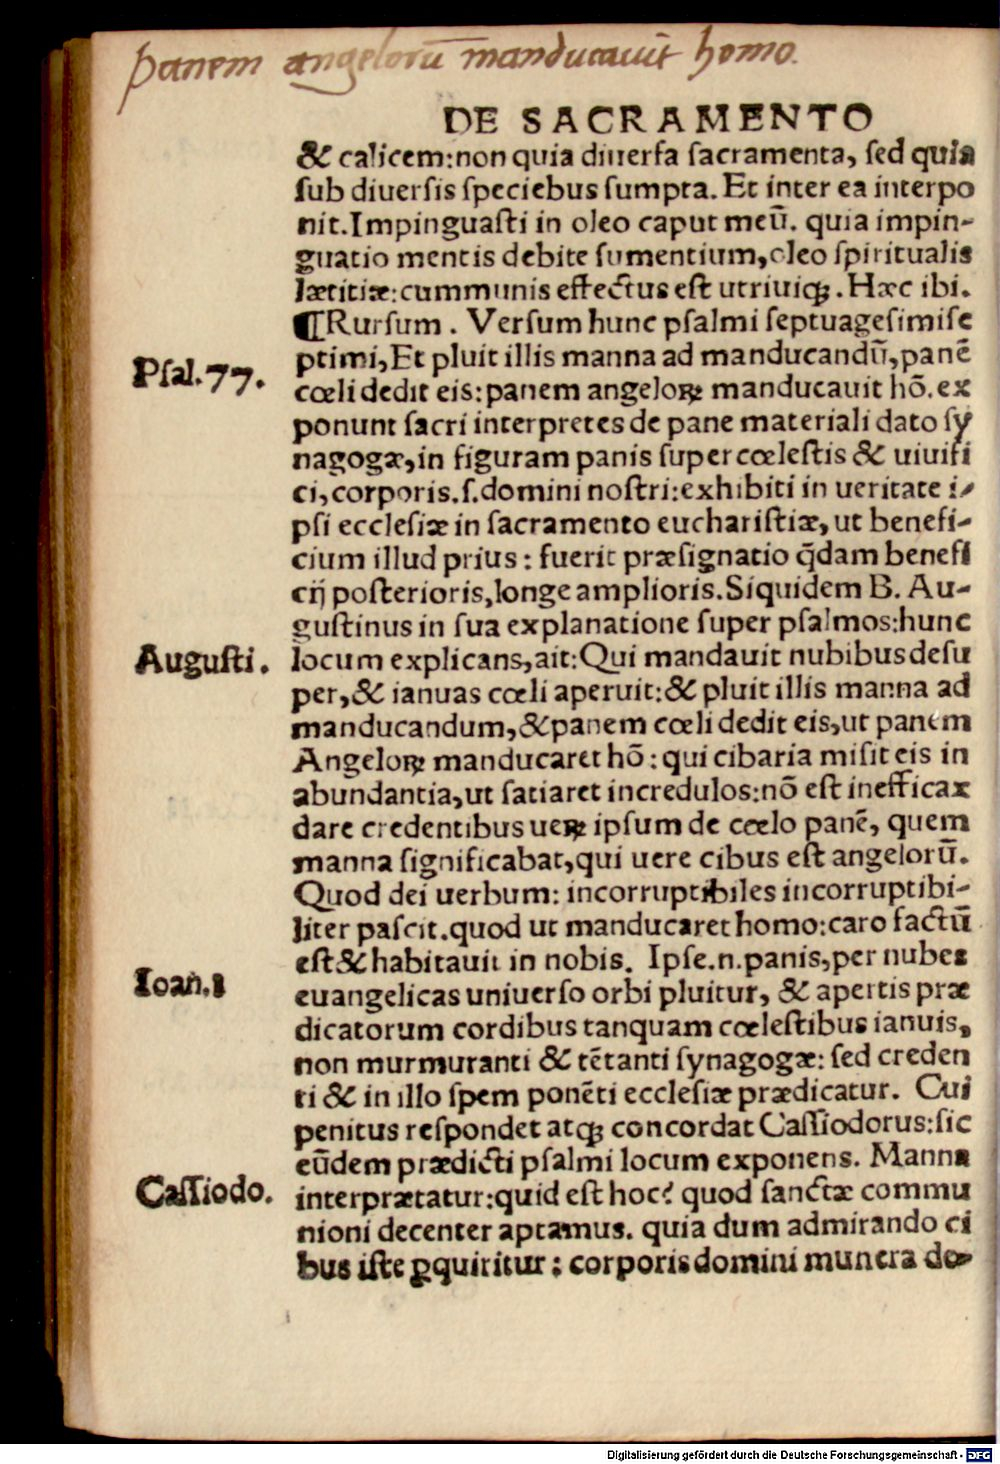 panem angelorū manducauit homo.
DE SACRAMENTO
& calicem:non quia diuersa sacramenta, sed quia
sub diuersis speciebus sumpta. Et inter ea interpo
nit. Impinguasti in oleo caput meū. quia impin-
guatio mentis debite sumentium, oleo spiritualis
lætitiæ: cummunis effectus est utriuiqꝫ. Hæc ibi.
¶Rursum. Versum hunc psalmi septuagesimise
Psal.77.
ptimi, Et pluit illis manna ad manducandū, panē
cœli dedit eis: panem angeloꝝ manducauit hō. ex
ponunt sacri interpretes de pane materiali dato sy
nagogæ, in figuram panis supercœlestis & uiuifi
ci, corporis.s.domini nostri: exhibiti in ueritate i-
psi ecclesiæ in sacramento eucharistiæ, ut benefi-
cium illud prius: fuerit præsignatio q̄dam benefi
cij posterioris, longe amplioris. Siquidem B. Au-
gustinus in sua explanatione super psalmos: hunc
Augusti.
locum explicans, ait: Qui mandauit nubibus desu
per, & ianuas cœli aperuit: & pluit illis manna ad
manducandum, & panem cœli dedit eis, ut panem
Angeloꝝ manducaret hō: qui cibaria misit eis in
abundantia, ut satiaret incredulos: nō est inefficax
dare credentibus ueꝝ ipsum de cœlo panē, quem
manna significabat, qui uere cibus est angelorū.
Quod dei uerbum: incorruptibiles incorruptibi-
liter pascit. quod ut manducaret homo: caro factū
est & habitauit in nobis. Ipse.n.panis, per nubes
Ioan.1
euangelicas uniuerso orbi pluitur, & apertis præ
dicatorum cordibus tanquam cœlestibus ianuis,
non murmuranti & tētanti synagogæ: sed creden
ti & in illo spem ponēti ecclesiæ prædicatur. Cui
penitus respondet atqꝫ concordat Cassiodorus: sic
eūdem prædicti psalmi locum exponens. Manna
Cassiodo.
interprætatur: quid est hoc? quod sanctæ commu
nioni decenter aptamus. quia dum admirando ci
bus iste ꝑquiritur: corporis domini munera de-
Digitalisierung gefördert durch die Deutsche Forschungsgemeinschaft - DFG